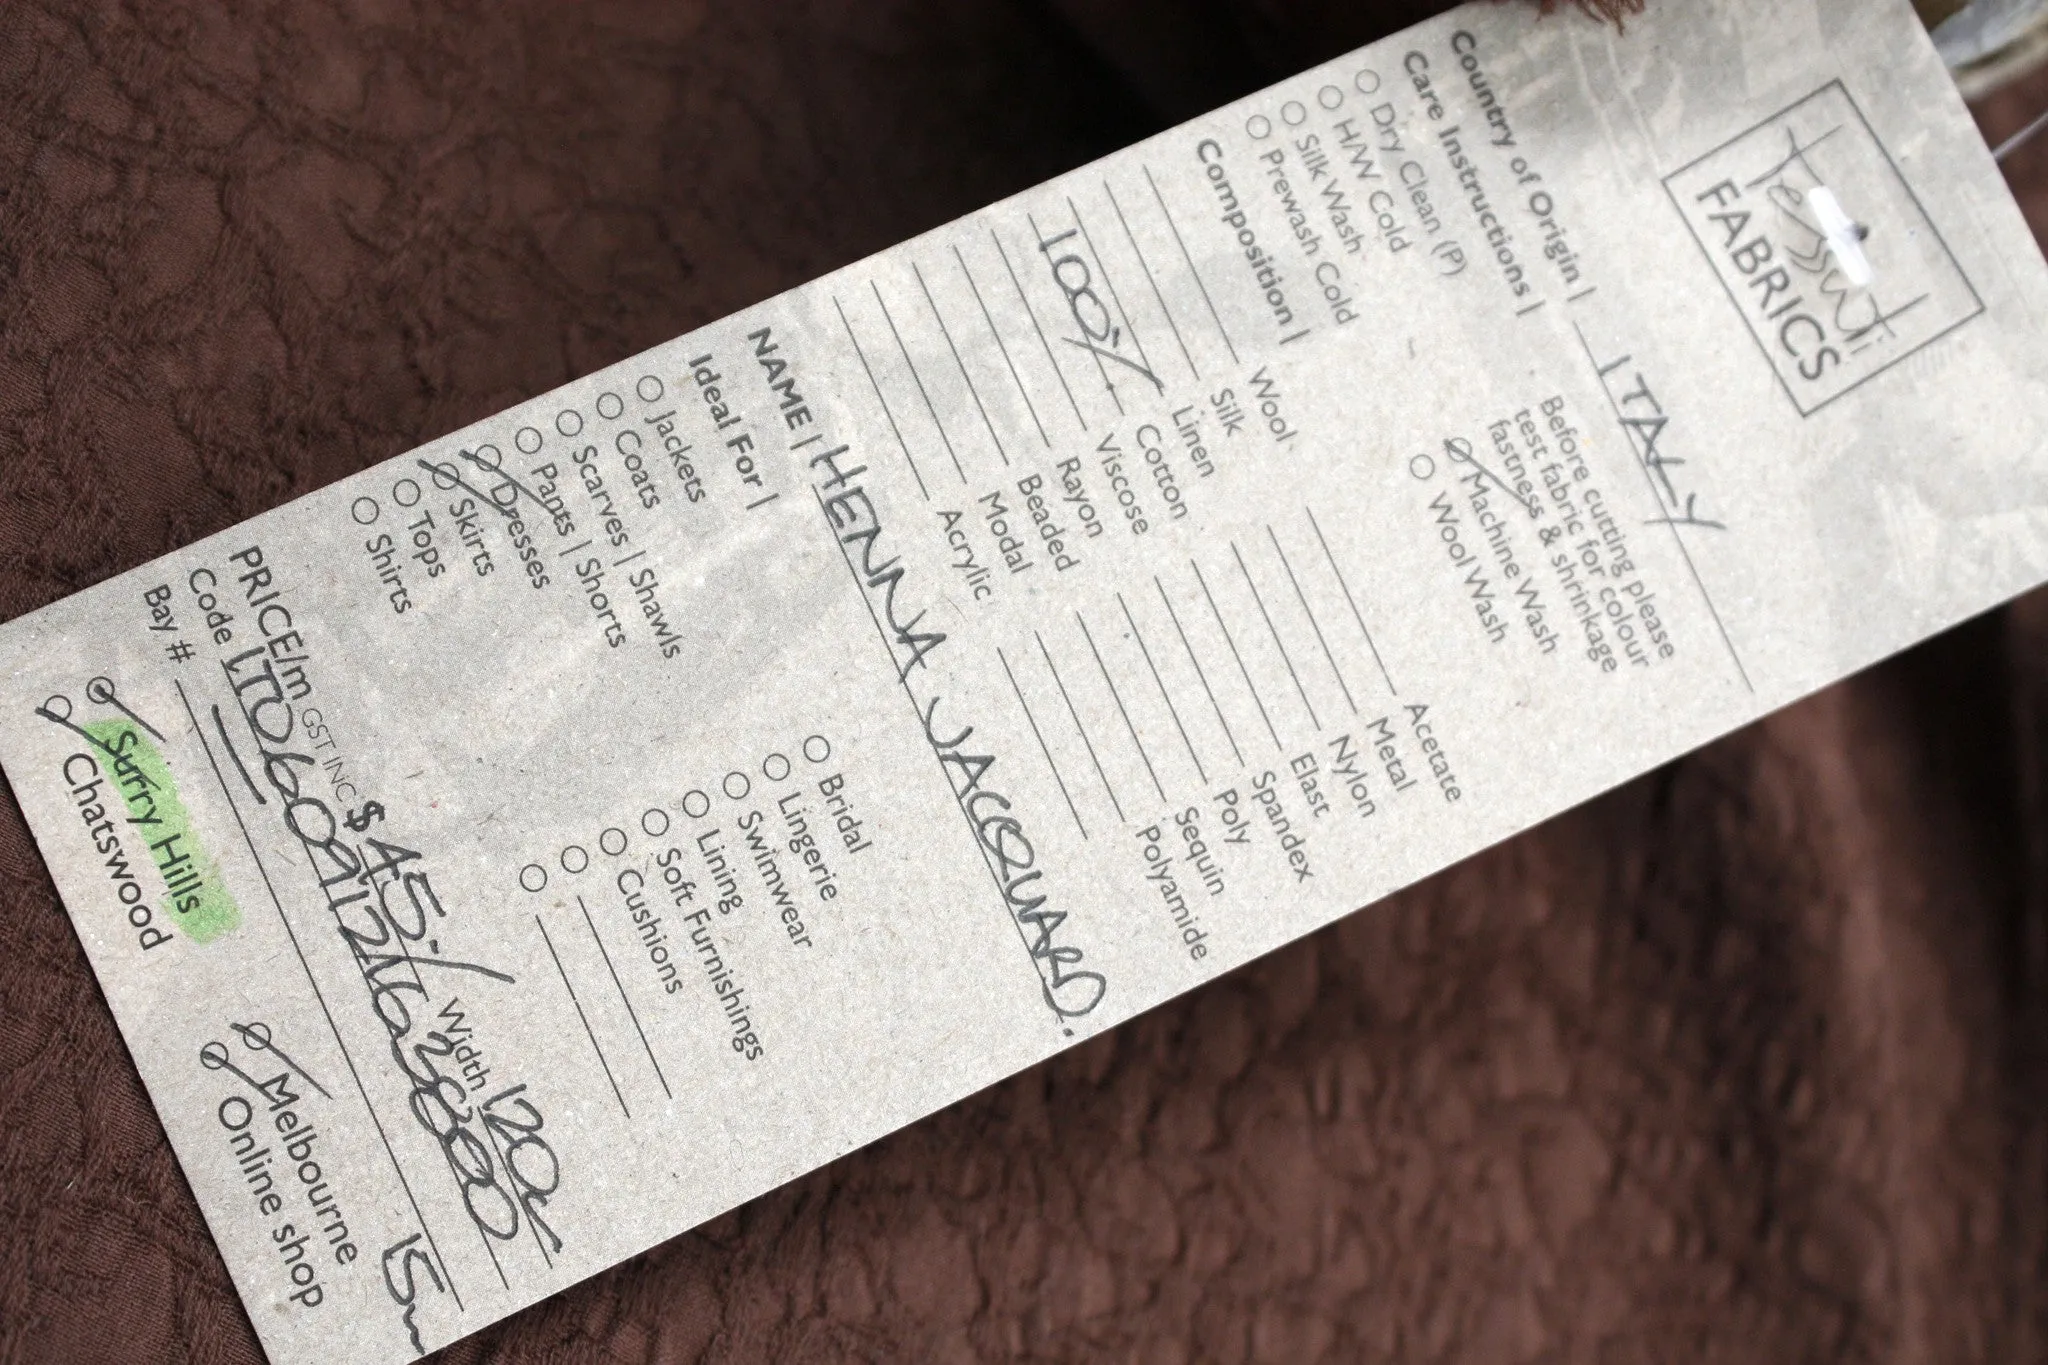 Tessuti
FABRICS
Country of Origin | ITALY
Care Instructions |
Dry Clean (P)
H/W Cold
Silk Wash
Prewash Cold
Before cutting please
test fabric for colour
fastness & shrinkage
Machine Wash
Wool Wash
Composition |
Wool
Silk
Linen
100% Cotton
Viscose
Rayon
Beaded
Modal
Acrylic
Acetate
Metal
Nylon
Elast
Spandex
Poly
Sequin
Polyamide
NAME | HENNA JACQUARD.
Ideal For |
Jackets
Coats
Scarves | Shawls
Pants | Shorts
Dresses
Skirts
Tops
Shirts
Bridal
Lingerie
Swimwear
Lining
Soft Furnishings
Cushions
PRICE/m GST INC $45 Width 120c
Code
Bay # 15m
Surry Hills
Chatswood
Melbourne
Online shop